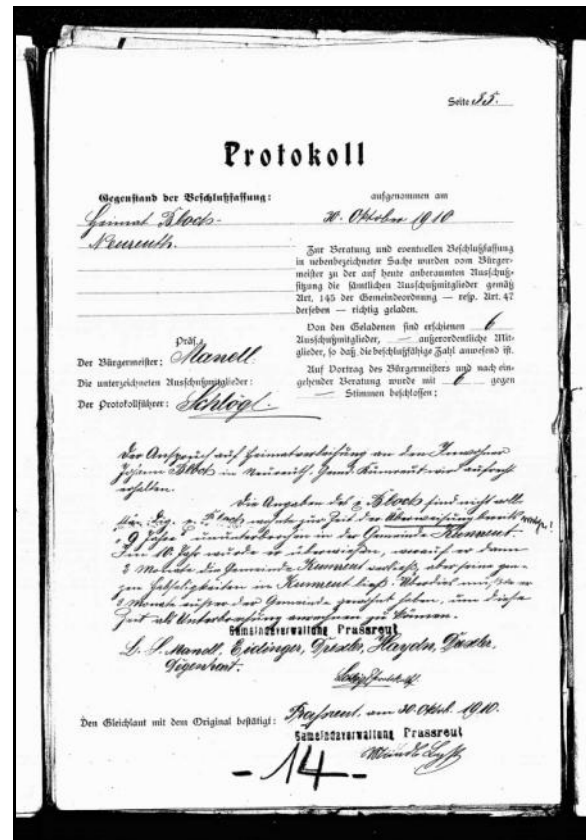 Seite 85.
Protokoll
Gegenstand der Beschlußfassung:
Heimat Bloch-
Neureuth.
aufgenommen am
30. Oktober 1910
Zur Beratung und eventuellen Beschlußfassung
in nebenbezeichneter Sache wurden vom Bürger-
meister zu der auf heute anberaumten Ausschuß-
sitzung die sämtlichen Ausschußmitglieder gemäß
Art. 145 der Gemeindeordnung — resp. Art. 47
derselben — richtig geladen.
Von den Geladenen sind erschienen 6
Ausschußmitglieder, — außerordentliche Mit-
glieder, so daß die beschlußfähige Zahl anwesend ist.
Auf Vortrag des Bürgermeisters und nach ein-
gehender Beratung wurde mit 6 gegen
— Stimmen beschlossen:
Präs.
Der Bürgermeister: Mandl.
Die unterzeichneten Ausschußmitglieder:
Der Protokollführer: Schlögl.
Der Anspruch auf Heimatverleihung an den Inwohner
Johann Bloch in Neureuth, Gemd. Kumreut wird aufrecht
erhalten.
Die Angaben des Bloch sind nicht voll-
Bloch wohnte zur Zeit der Überweisung bereits
"9 Jahre" ununterbrochen in der Gemeinde Kumreut.
Im 10. Jahr wurde er überwiesen, worauf er dann
2 Monate die Gemeinde Kumreut verließ, aber seine gan-
zen Habseligkeiten in Kumreut ließ. Überdies müßte er
Monate außer der Gemeinde gewohnt haben, um diese
Zeit als Unterbrechung anrechnen zu können.
Gemeindeverwaltung Prassreut
L. S. Mandl, Eidinger, Drexler, Haydn, Drexler,
Degenhart.
Den Gleichlaut mit dem Original bestätigt: Praßreut, am 30. Oktob. 1910.
Gemeindeverwaltung Prassreut
- 14 -